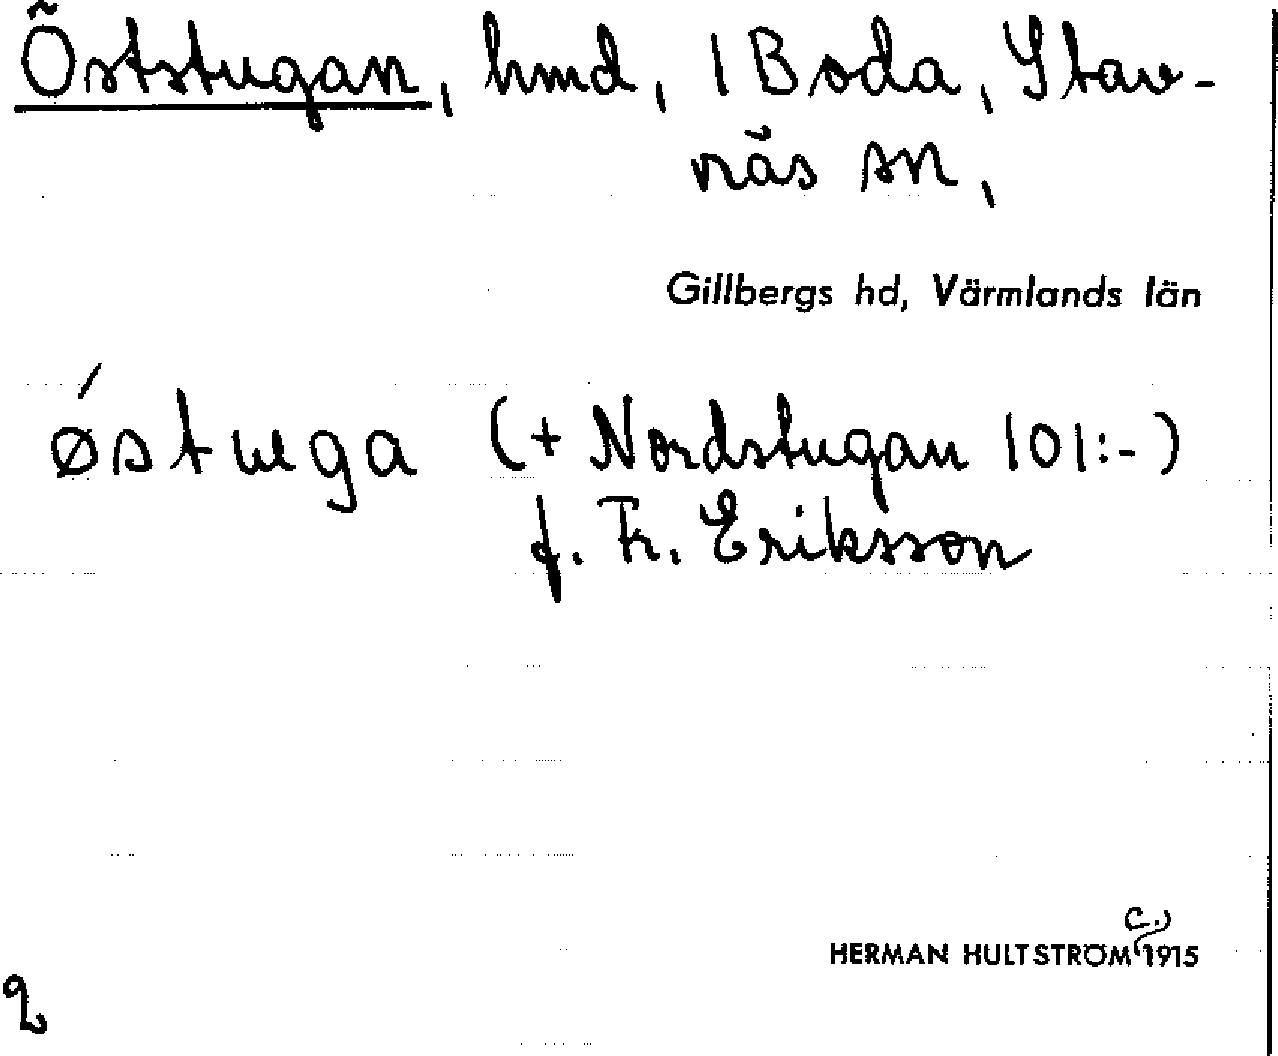 Öststugan, hmd, 1 Boda, Stav-
näs sn,
Gillbergs hd, Värmlands län
østuga (+ Nordstugan 101:-)
f. Fr. Eriksson
(c.)
HERMAN HULTSTRÖM 1915
2